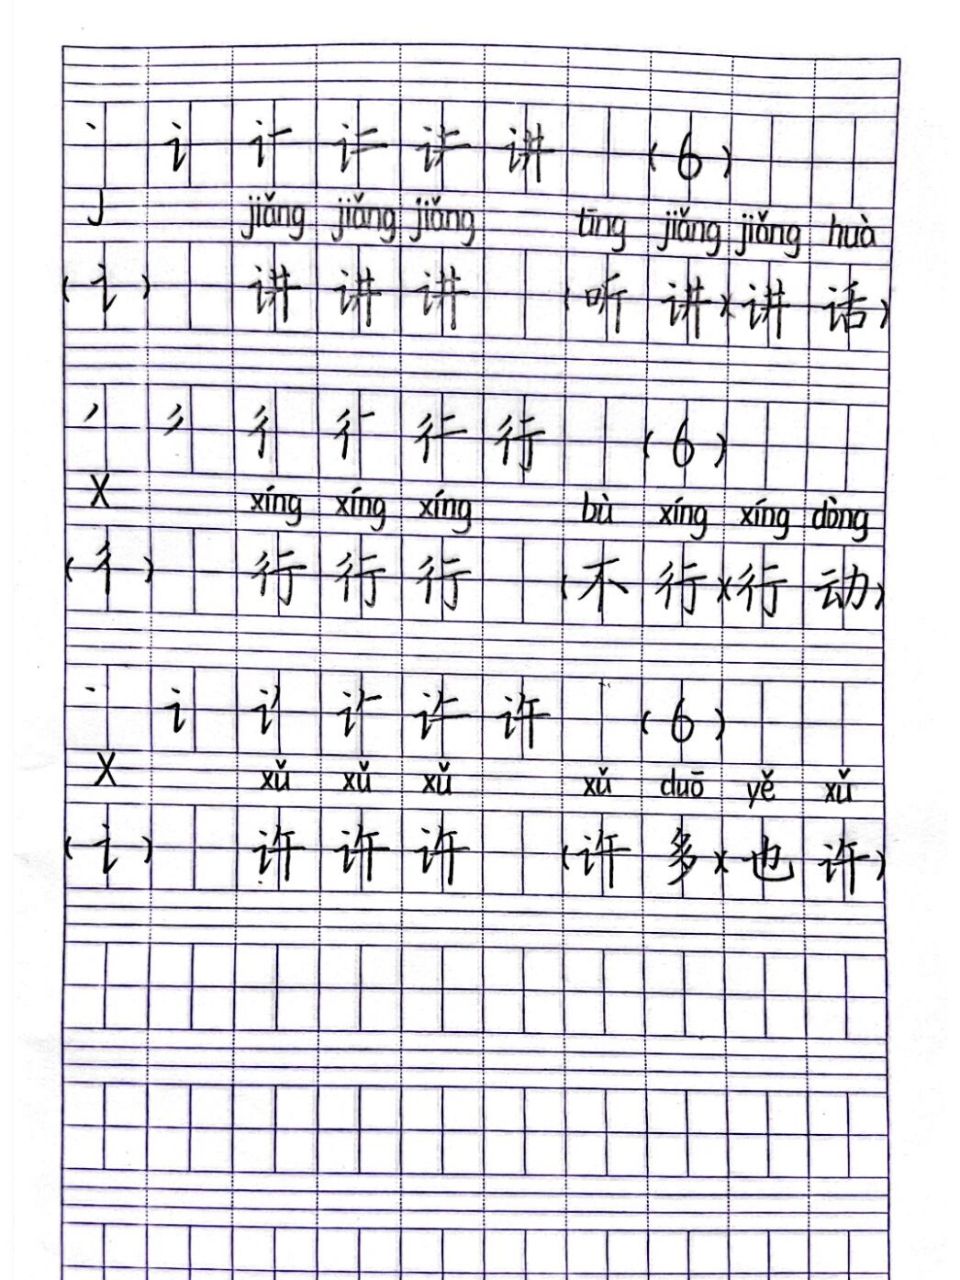 丶 讠 讠一 讠二 讲 (6)
J jiǎng jiǎng jiǎng tīng jiǎng jiǎng huà
(讠) 讲 讲 讲 (听 讲)(讲 话)
丿 彳 行 (6)
X xíng xíng xíng bù xíng xíng dòng
(彳) 行 行 行 (不 行)(行 动)
丶 讠 许 (6)
X xǔ xǔ xǔ xǔ duō yě xǔ
(讠) 许 许 许 (许 多)(也 许)